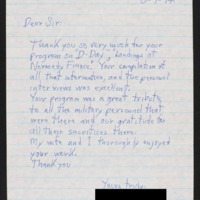 Dear Sir:
Thank you so very much for your
program on D-Day, "Landings at
Normandy France." Your compilation of
all that information, and the personal
interviews was excellent.
Your program was a great tribute
to all the military personnel that
were there and our gratitude to
all those sacrifices there.
My wife and I thoroughly enjoyed
your work.
Thank you
Yours truly,